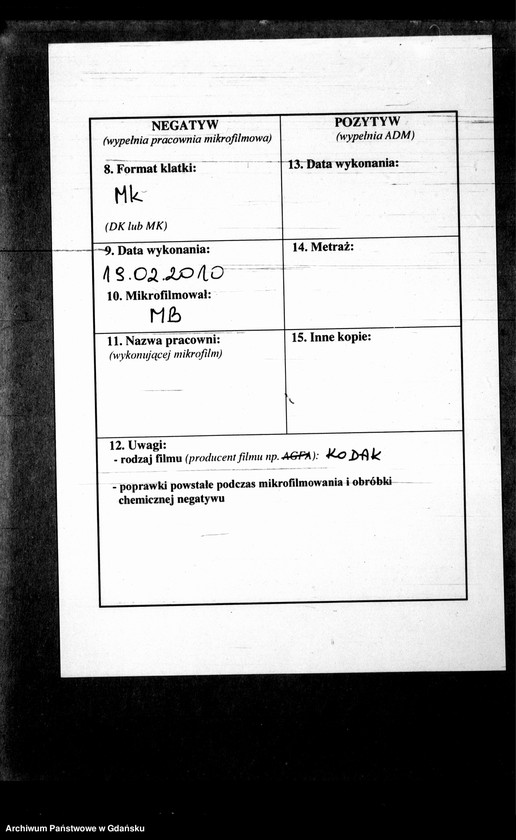 NEGATYW
(wypełnia pracownia mikrofilmowa)
8. Format klatki:
MK
(DK lub MK)
9. Data wykonania:
19.02.2010
10. Mikrofilmował:
MB
11. Nazwa pracowni:
(wykonującej mikrofilm)
POZYTYW
(wypełnia ADM)
13. Data wykonania:
14. Metraż:
15. Inne kopie:
12. Uwagi:
- rodzaj filmu (producent filmu np. AGFA): KODAK
- poprawki powstałe podczas mikrofilmowania i obróbki
chemicznej negatywu
Archiwum Państwowe w Gdańsku